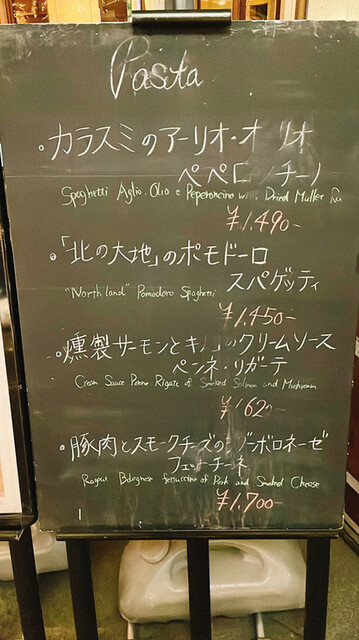 Pasta
・カラスミのアーリオ・オリオ
ペペロンチーノ
Spaghetti Aglio. Olio e Peperoncino with Dried Mullet
¥1,490-
・「北の大地」のポモドーロ
スパゲッティ
"North land" Pomodoro Spaghetti
¥1,450-
・燻製サーモンとキノコのクリームソース
ペンネ・リガーテ
Cream Sauce Penne Rigate of Smoked Salmon and Mushroom
¥1,620-
・豚肉とスモークチーズのラグーボロネーゼ
フェットチーネ
Ragout Bolognese fettuccine of Pork and Smoked Cheese
¥1,700-